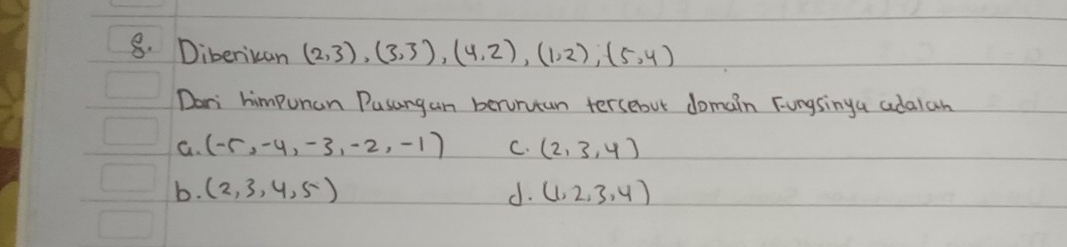 8. Diberikan (2,3), (3,3), (4,2), (1,2), (5,4)
Dari himpunan Pasangan berurutan tersebut domain Fungsinya adalah
a. (-5, -4, -3, -2, -1) c. (2, 3, 4)
b. (2, 3, 4, 5) d. (1, 2, 3, 4)